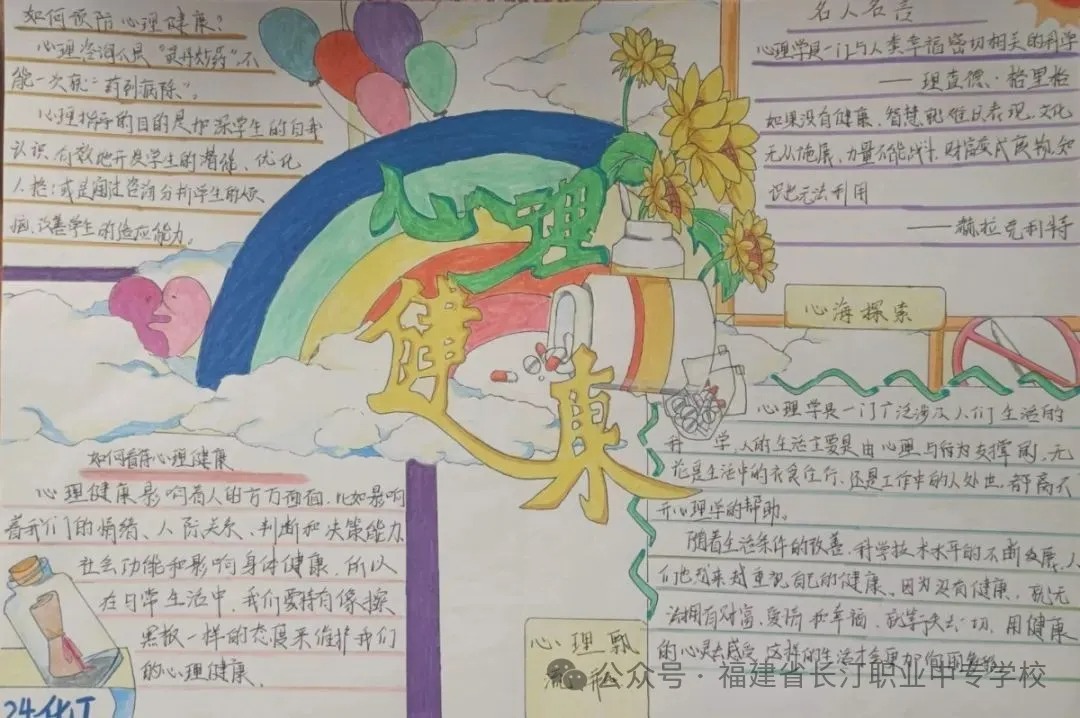 如何预防心理健康?
心理咨询不是“灵丹妙药”,不
能一次就“药到病除”。
心理指导的目的是加深学生的自我
认识,有效地开发学生的潜能、优化
人格;或是通过咨询分析学生的烦
恼、改善学生的适应能力。
名人名言
心理学是一门与人类幸福密切相关的科学
——理查德·格里格
如果没有健康、智慧就难以表现,文化
无从施展、力量不能战斗,财富变成废物,知
识也无法利用
——赫拉克利特
心理
健康
心海探索
心理学是一门广泛涉及人们生活的
科 学,人的生活主要是由心理与行为支撑的,无
论是生活中的衣食住行,还是工作中的人处世,都离不
开心理学的帮助。
随着生活条件的改善,科学技术水平的不断发展,人
们也越来越重视自己的健康。因为没有健康,就无
法拥有财富、爱情和幸福,就等于失去一切,用健康
的心灵去感受,这样的生活才会更加
如何看待心理健康
心理健康影响着人的方方面面,比如影响
着我们的情绪、人际关系、判断和决策能力
社会功能和影响身体健康,所以
在日常生活中,我们要持有像擦
黑板一样的态度来维护我们
的心理健康.
心理飘
流瓶
24化工
公众号·福建省长汀职业中专学校